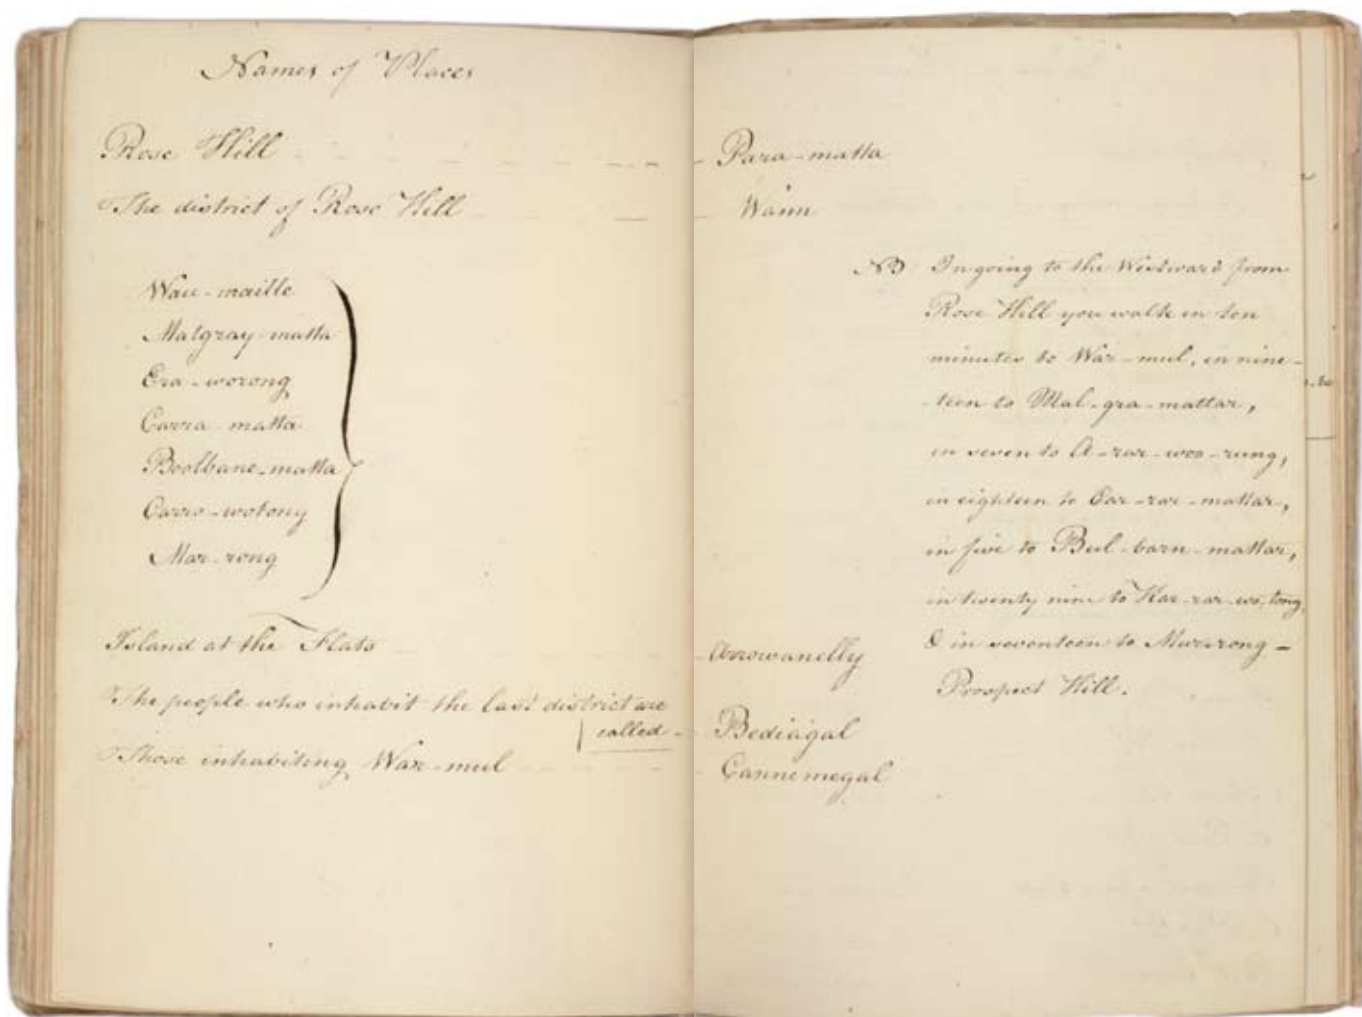 Names of Places
Rose Hill - - - - - - - Para-matta
The district of Rose Hill - - - - Wann
Wau-maille
Malgray-matta
Era-worong
Carra-matta
Boolbane-matta
Carro-wotong
Mar-rong
Island at the Flats - - - - - Arrowanelly
The people who inhabit the last district are
called - - Bediágal
Those inhabiting War-mul - - - - - Cannemegal
NB In going to the Westward from
Rose Hill you walk in ten
minutes to War-mul, in nine-
-teen to Mal-gra-mattar,
in seven to A-rar-woo-rung,
in eighteen to Car-rar-mattar,
in five to Bul-barn-mattar,
in twenty nine to Kar-rar-wo-tong,
& in seventeen to Mur-rong -
Prospect Hill.